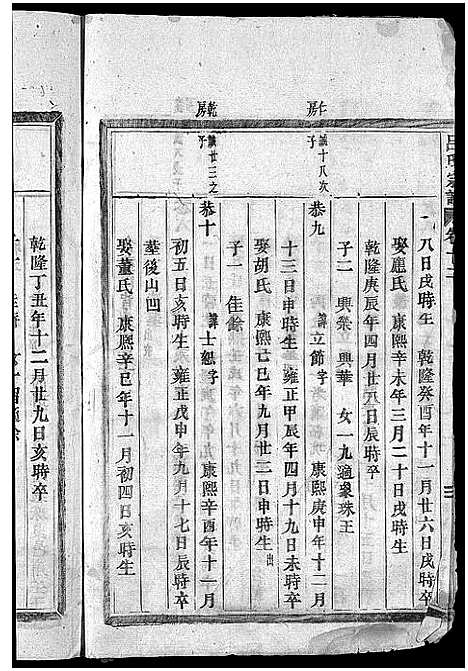 呂氏宗譜
八日戌時生 乾隆癸酉年十一月廿六日戌時卒
娶應氏 康熙辛未年三月二十日戌時生
乾隆庚辰年四月廿八日辰時卒
子二 興業 興華 女一九適象珠王
仁房
誠十八次子
恭九 諱立節字 康熙庚申年十二月
十三日申時生 雍正甲辰年四月十九日未時卒
娶胡氏 康熙己巳年九月廿二日申時生 出
子一 佳餘
乾房
誠廿三之子
恭十 諱士紀字 康熙辛酉年十一月
初五日亥時生 雍正戊申年九月十七日辰時卒
塟後山凹
娶董氏 康熙辛巳年十一月初四日亥時生
乾隆丁丑年十二月廿九日亥時卒